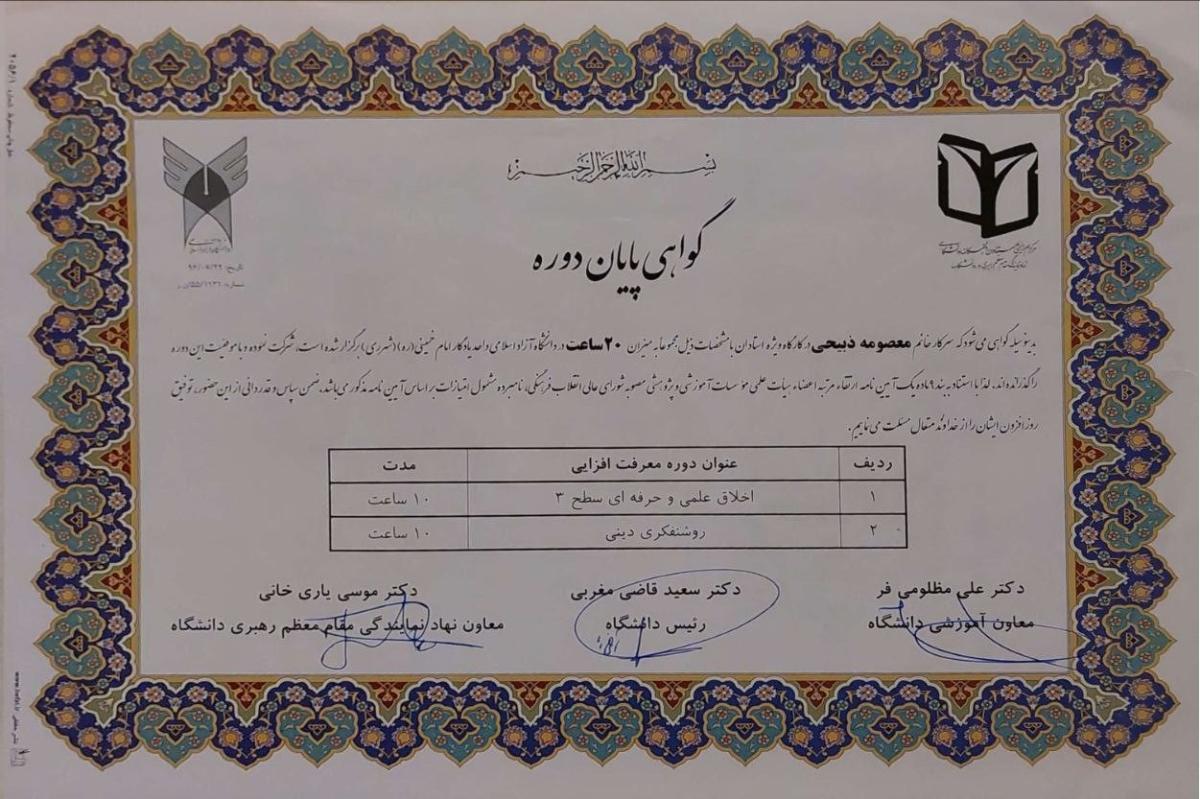 بسم الله الرحمن الرحیم
گواهی پایان دوره
دانشگاه آزاد اسلامی
تاریخ:
شماره:
بدینوسیله گواهی می شود که سرکار خانم معصومه ذبیحی در کارگاه ویژه استادان با مشخصات ذیل مجموعا به میزان ۲۰ ساعت در دانشگاه آزاد اسلامی واحد یادگار امام خمینی(ره)(شهرری) برگزار شده است، شرکت نموده و با موفقیت این دوره
را گذرانده اند. لذا با استناد به بند ۹ ماده یک آیین نامه ارتقاء مرتبه اعضاء هیات علمی مؤسسات آموزشی و پژوهشی مصوبه شورای عالی انقلاب فرهنگی، نامبرده مشمول امتیازات بر اساس آیین نامه مذکور می باشد. ضمن سپاس و قدردانی از این حضور، توفیق
روز افزون ایشان را از خداوند متعال مسئلت می نماییم.
ردیف عنوان دوره معرفت افزایی مدت
۱ اخلاق علمی و حرفه ای سطح ۳ ۱۰ ساعت
۲ روشنفکری دینی ۱۰ ساعت
دکتر علی مظلومی فر دکتر سعید قاضی مغربی دکتر موسی یاری خانی
معاون آموزشی دانشگاه رئیس دانشگاه معاون نهاد نمایندگی مقام معظم رهبری دانشگاه